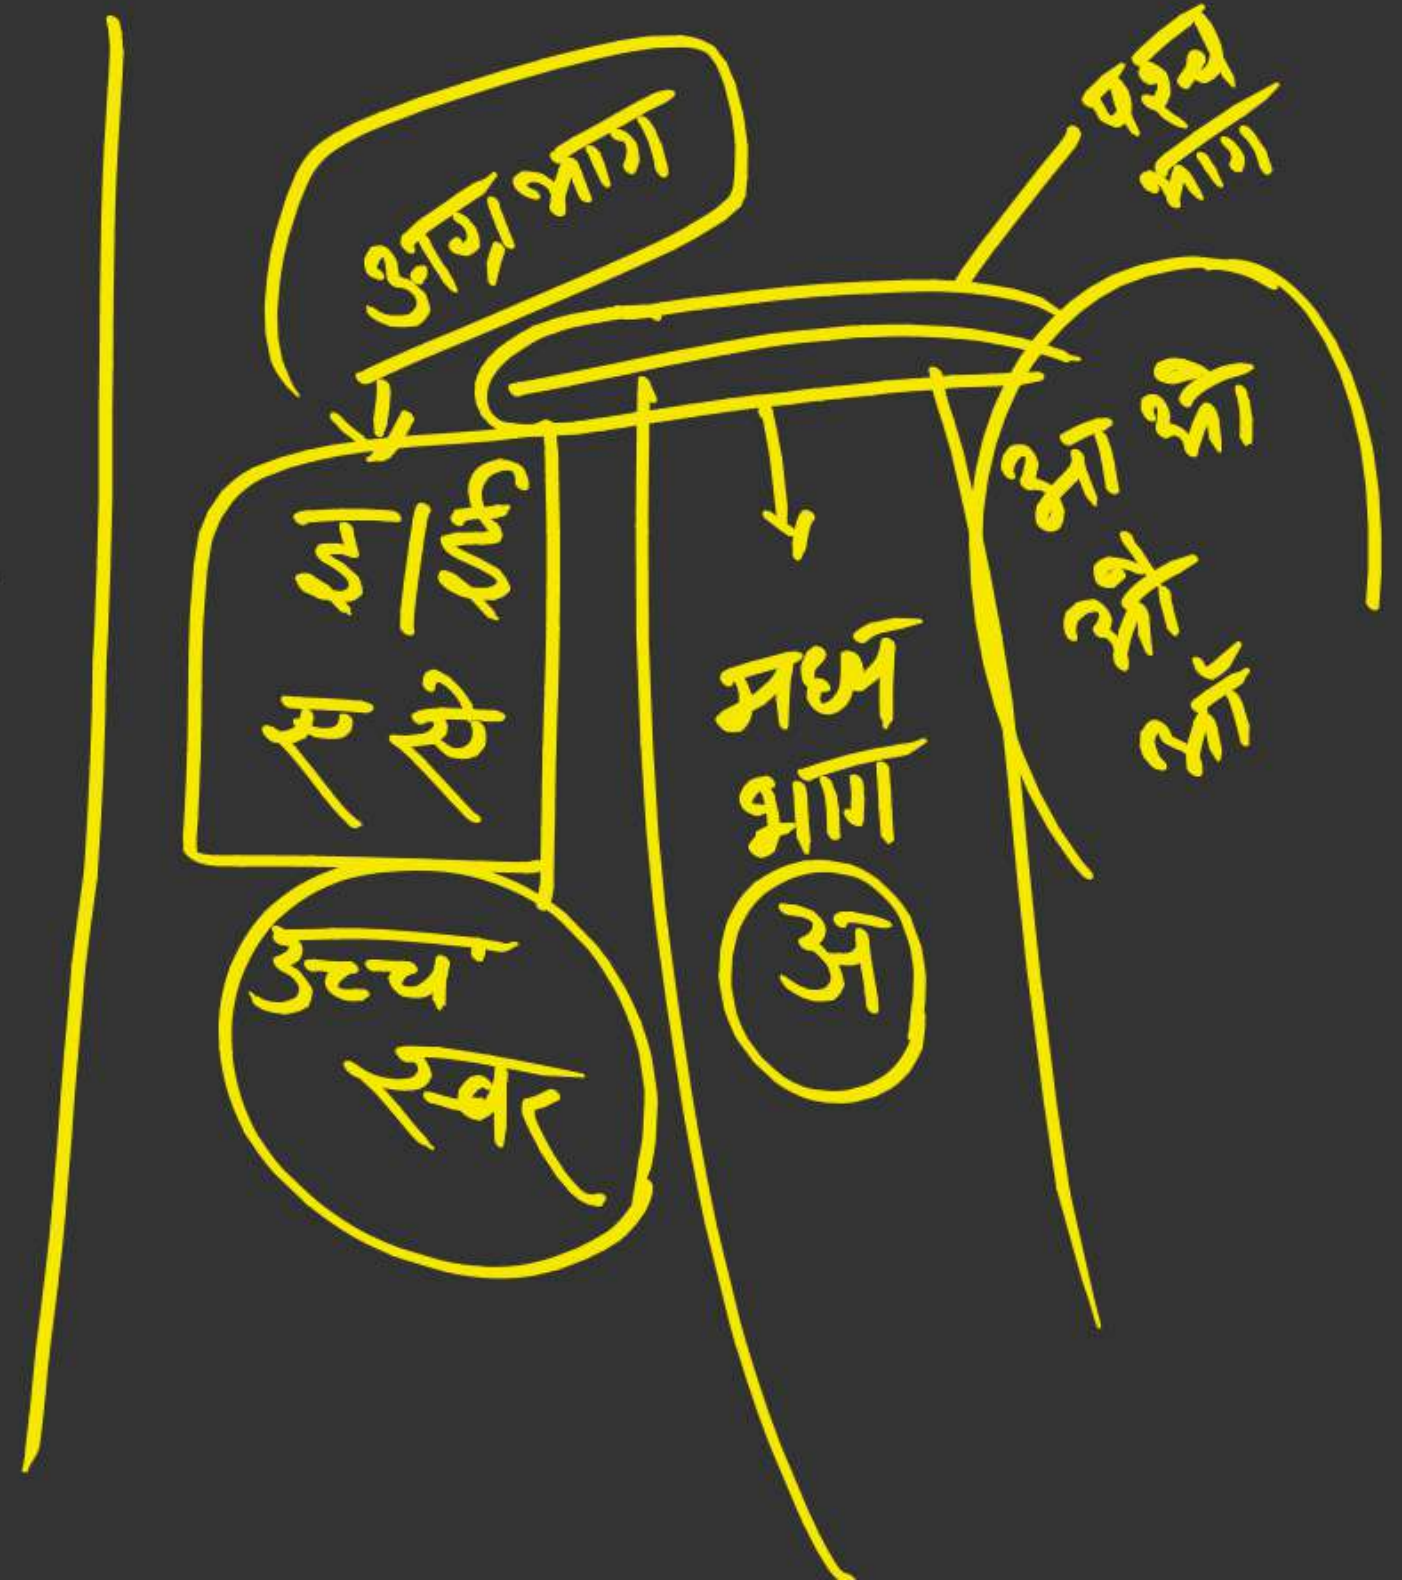 अग्र भाग
पश्च
भाग
इ/ई
ए ऐ
उच्च
स्वर
मध्य
भाग
अ
आ ओ
औ
ऑ